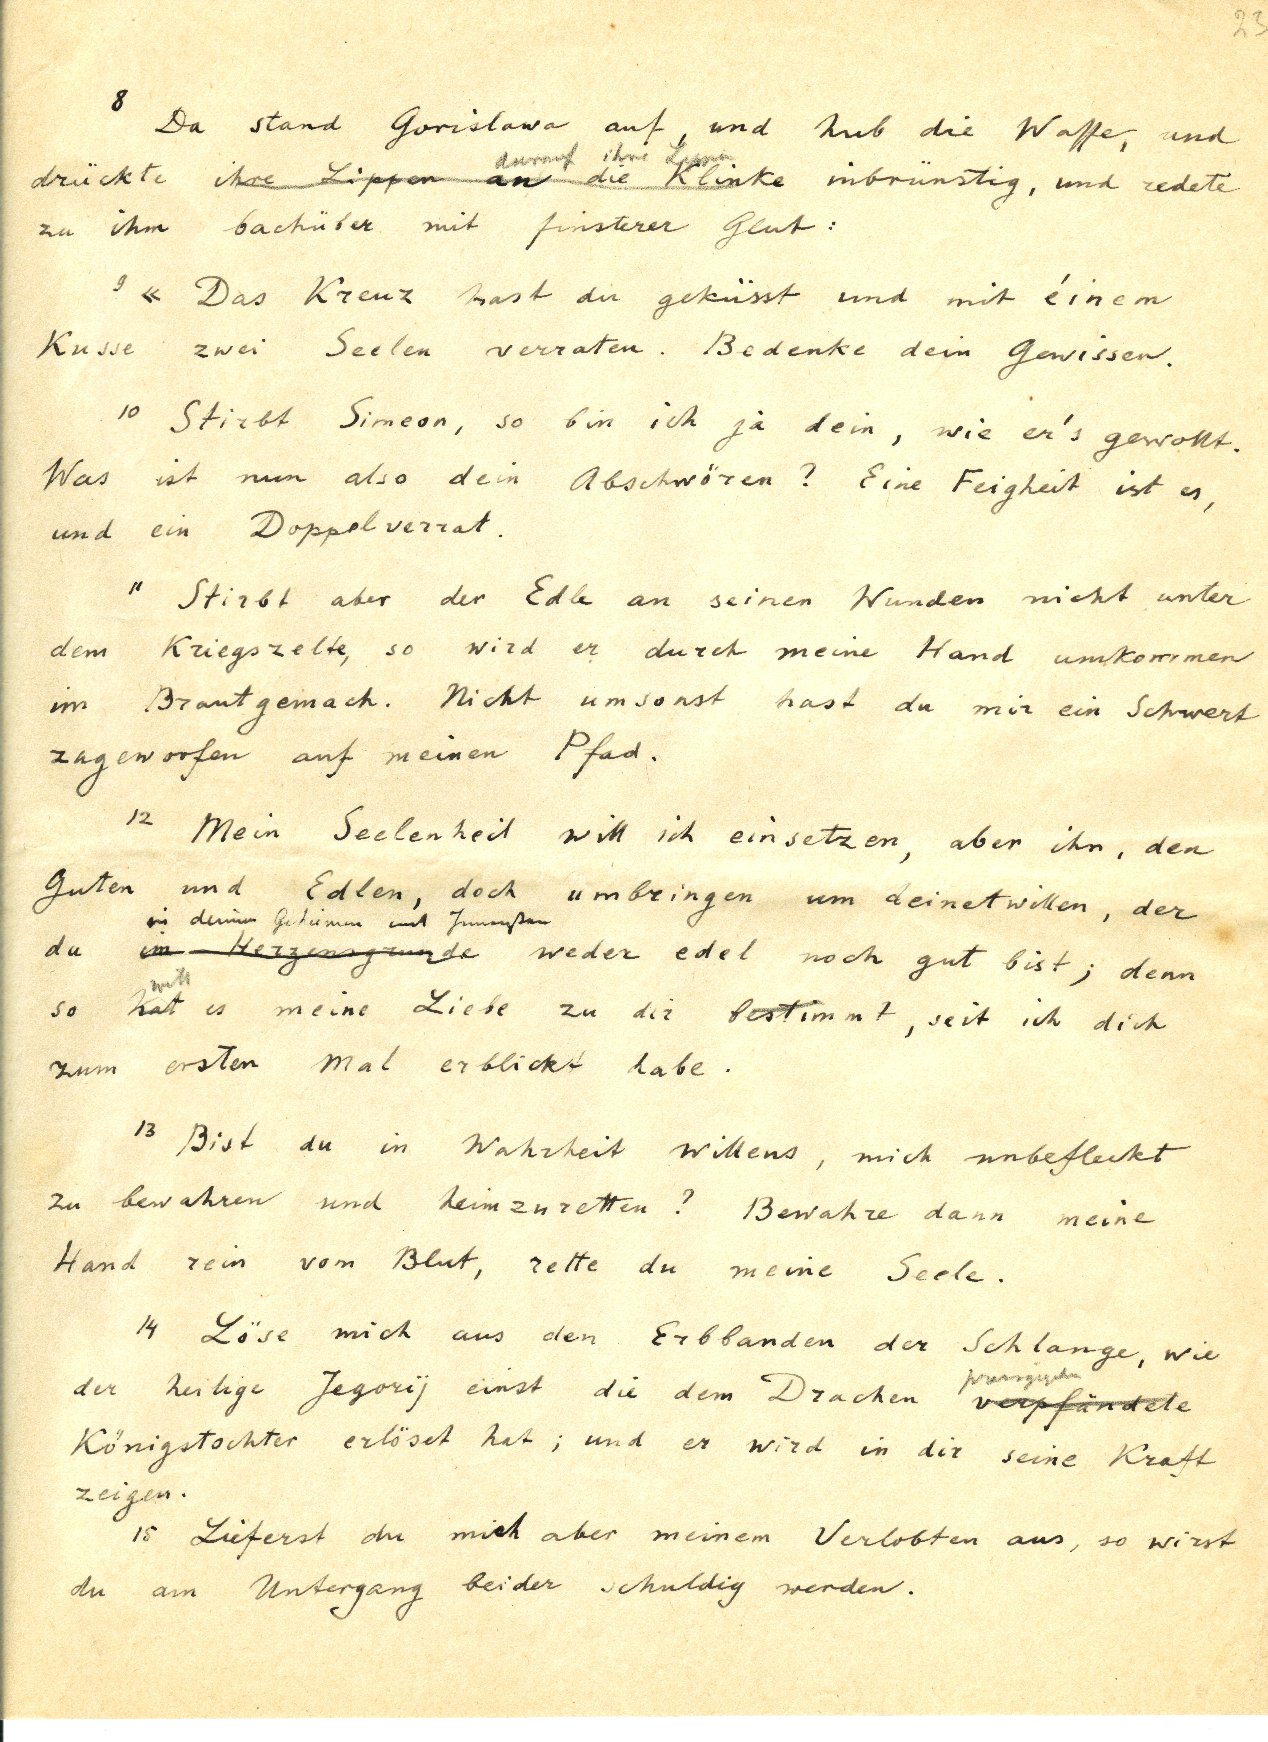 23
8 Da stand Gorislawa auf, und hub die Waffe, und
darauf ihre Lippen
drückte ihre Lippen an die Klinke inbrünstig, und redete
zu ihm bachüber mit finsterer Glut:
9 « Das Kreuz hast du geküsst und mit éinem
Kusse zwei Seelen verraten. Bedenke dein Gewissen.
10 Stirbt Simeon, so bin ich ja dein, wie er's gewollt.
Was ist nun also dein Abschwören? Eine Feigheit ist es,
und ein Doppelverrat.
11 Stirbt aber der Edle an seinen Wunden nicht unter
dem Kriegszelte, so wird er durch meine Hand umkommen
im Brautgemach. Nicht umsonst hast du mir ein Schwert
zugeworfen auf meinen Pfad.
12 Mein Seelenheil will ich einsetzen, aber ihn, den
Guten und Edlen, doch umbringen um deinetwillen, der
in deinem Geheimen und
du im Herzensgrunde weder edel noch gut bist; denn
will
so hat es meine Liebe zu dir bestimmt, seit ich dich
zum ersten Mal erblickt habe.
13 Bist du in Wahrheit willens, mich unbefleckt
zu bewahren und heimzuretten? Bewahre dann meine
Hand rein vom Blut, rette du meine Seele.
14 Löse mich aus den Erbbanden der Schlange, wie
der heilige Jegorij einst die dem Drachen verpfändete
Königstochter erlöset hat; und er wird in dir seine Kraft
zeigen.
15 Lieferst du mich aber meinem Verlobten aus, so wirst
du am Untergang beider schuldig werden.